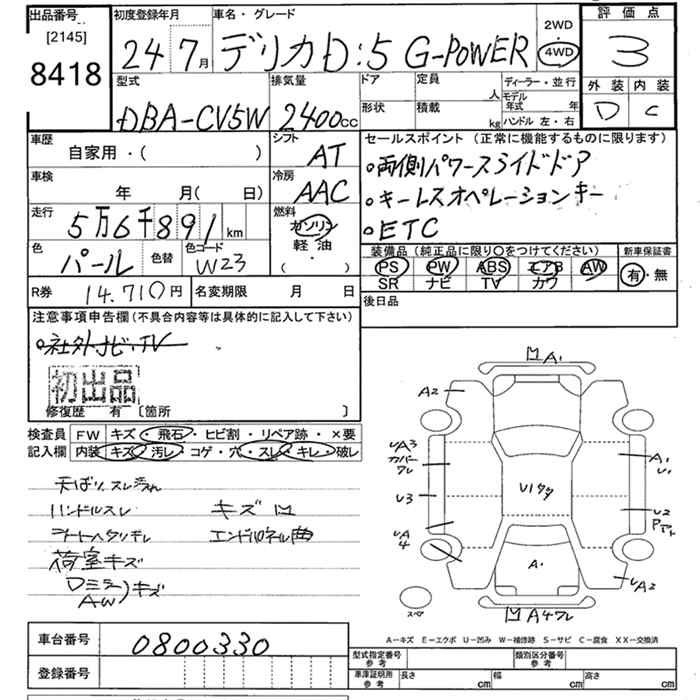 出品番号
[2145]
8418
初度登録年月
24 7月
車名・グレード
デリカD:5 G-POWER
2WD
4WD
評価点
3
外装 内装
D C
型式
DBA-CV5W
排気量
2400cc
ドア
形状
定員 人
積載 kg
ディーラー・並行
モデル年式 年
ハンドル 左・右
車歴
自家用・( )
シフト
AT
車検
年 月( 日)
冷房
AAC
走行
5万6千891km
燃料
ガソリン
軽油
( )
色
パール
色替
色コード
W23
R券 14.710円
名変期限 月 日
セールスポイント (正常に機能するものに限ります)
・両側パワースライドドア
・キーレスオペレーションキー
・ETC
装備品(純正品に限り○をつけてください)
新車保証書
PS PW ABS エアB AW
SR ナビ TV カワ
有・無
後日品
注意事項申告欄(不具合内容等は具体的に記入して下さい)
・社外ナビ・TV
初出品
修復歴 有 〔箇所 〕
検査員記入欄
FW キズ・飛石・ヒビ割・リペア跡・×要
内装 キズ・汚レ・コゲ・穴・スレ・キレ・破レ
ハンドルスレ
キズM
シートヘタリキレ
エンドパネル曲
荷室キズ
Dミラーキズ
AW
M A1
A2
UA3
カバーワレ
U3
UA4
A1 U1
U2
UA2
U1タッ
A1
スペア
M A4ワレ
A－キズ E－エクボ U－凹み W－補修跡 S－サビ C－腐食 XX－交換済
車台番号
0800330
登録番号
型式指定番号 参考
類別区分番号 参考
車庫証明用 参考
長さ cm
幅 cm
高さ cm